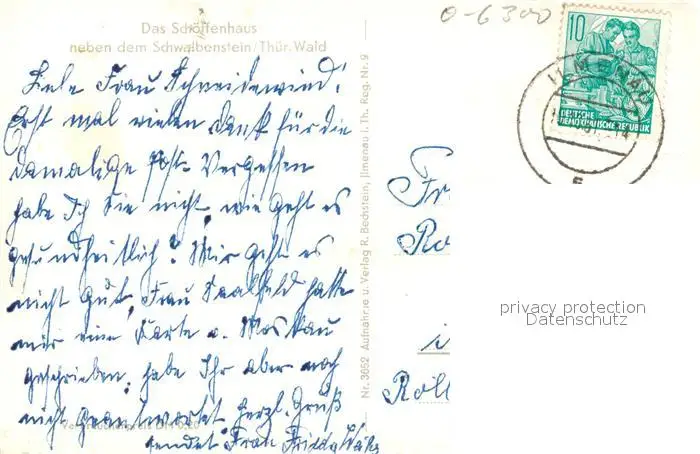 Das Schöffenhaus
neben dem Schwalbenstein/Thür. Wald
Liebe Frau Schneidewind!
Erst mal vielen Dank für die
damalige Post. Vergessen
habe Ich Sie nicht, wie geht es
gesundheitlich? Mir geht es
nicht gut, Frau Saalfeld hatte
mir eine Karte a. Moskau
geschrieben, habe Ihr aber noch
nicht geantwortet, herzl. Gruß
sendet Frau Frieda
Nr. 3652 Aufnahme u. Verlag R. Bechstein, Jlmenau i. Th. Reg. Nr. 9
0-6300
10
DEUTSCHE
DEMOKRATISCHE REPUBLIK
ILMENAU
Fr
Ro
i
Röll
privacy protection
Datenschutz